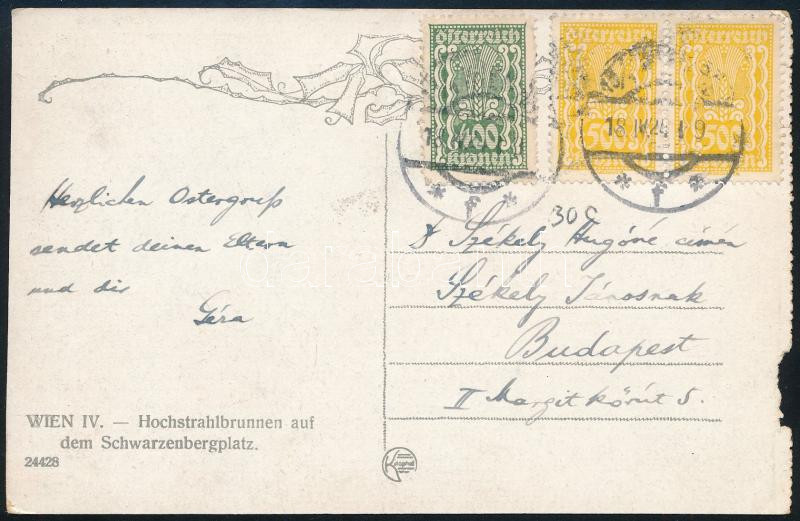 österreich
400
kronen
österreich
500
österreich
500
18 IV 24
9
* f *
* f *
30 g
Herzlichen Ostergruß
sendet deinen Eltern
und dir
Géza
Székely Hugóné címén
Székely Jánosnak
Budapest
II Margit körút 5.
WIEN IV. — Hochstrahlbrunnen auf
dem Schwarzenbergplatz.
24428